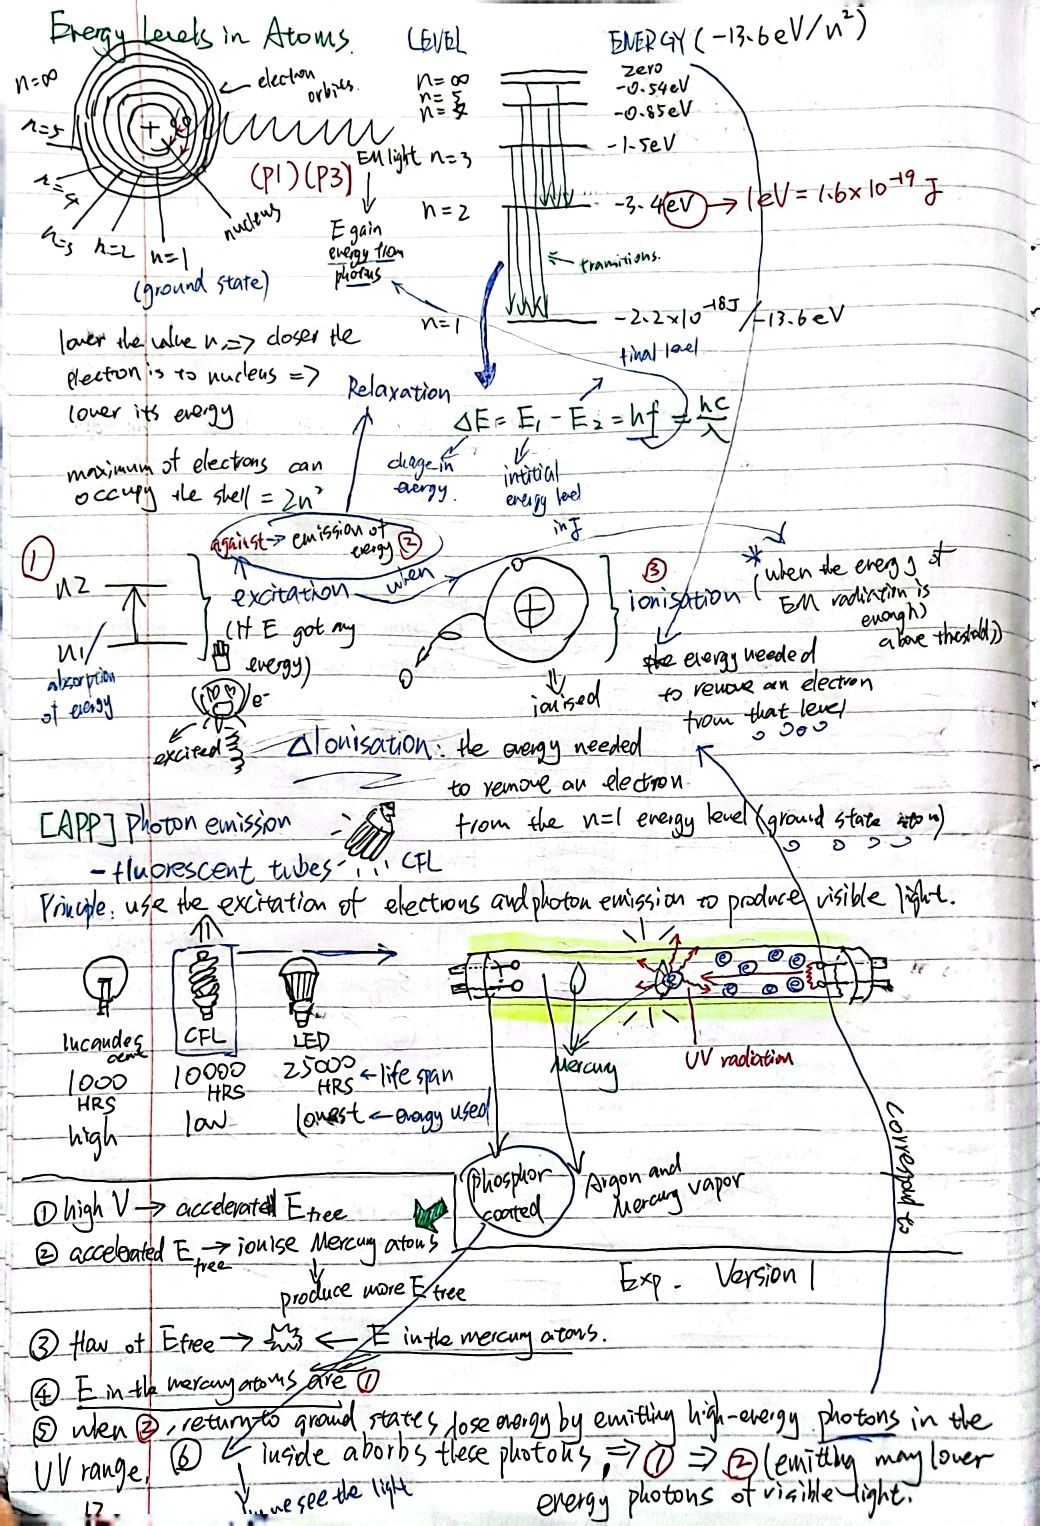 Energy levels in Atoms.
LEVEL
ENERGY (-13.6eV/n²)
n=∞
electron orbits
n=5
n=4
n=3
n=2
n=1
(ground state)
nucleus
(P1) (P3)
EM light
E gain
energy from
photons
n=∞
zero
n=5
-0.54eV
n=4
-0.85eV
n=3
-1.5eV
n=2
-3.4eV → 1eV = 1.6×10⁻¹⁹ J
transitions.
n=1
-2.2×10⁻¹⁸J / -13.6eV
final level
lower the value n, => closer the
electron is to nucleus =>
lower its energy
Relaxation
ΔE = E₁ - E₂ = hf = hc/λ
change in
energy.
intitial
energy level
in J
maximum of electrons can
occupy the shell = 2n²
①
n2
n1
absorption
of energy
against → emission of
energy ②
excitation
when
(if E got any
energy)
e-
excited
ionised
③
ionisation
* (when the energy of
EM radiation is
enough)
above threshold))
the energy needed
to remove an electron
from that level
△Ionisation: the energy needed
to remove an electron
from the n=1 energy level (ground state atom)
[APP] Photon emission
- fluorescent tubes
CFL
Principle: use the excitation of electrons and photon emission to produce visible light.
Incandescent
CFL
LED
1000 HRS
10000 HRS
25000 HRS ← life span
high
low
lowest ← energy used
Mercury
UV radiation
Phosphor
coated
Argon and
Mercury vapor
Correspond to
① high V → accelerated E free
② accelerated E free → ionise Mercury atoms
produce more E free
Exp. Version 1
③ flow of E free → ← E in the mercury atoms.
④ E in the mercury atoms are ①
⑤ when ②, return to ground states, lose energy by emitting high-energy photons in the
UV range.
⑥ inside aborbs these photons, => ① => ② (emitting may lower
energy photons of visible-light.
we see the light